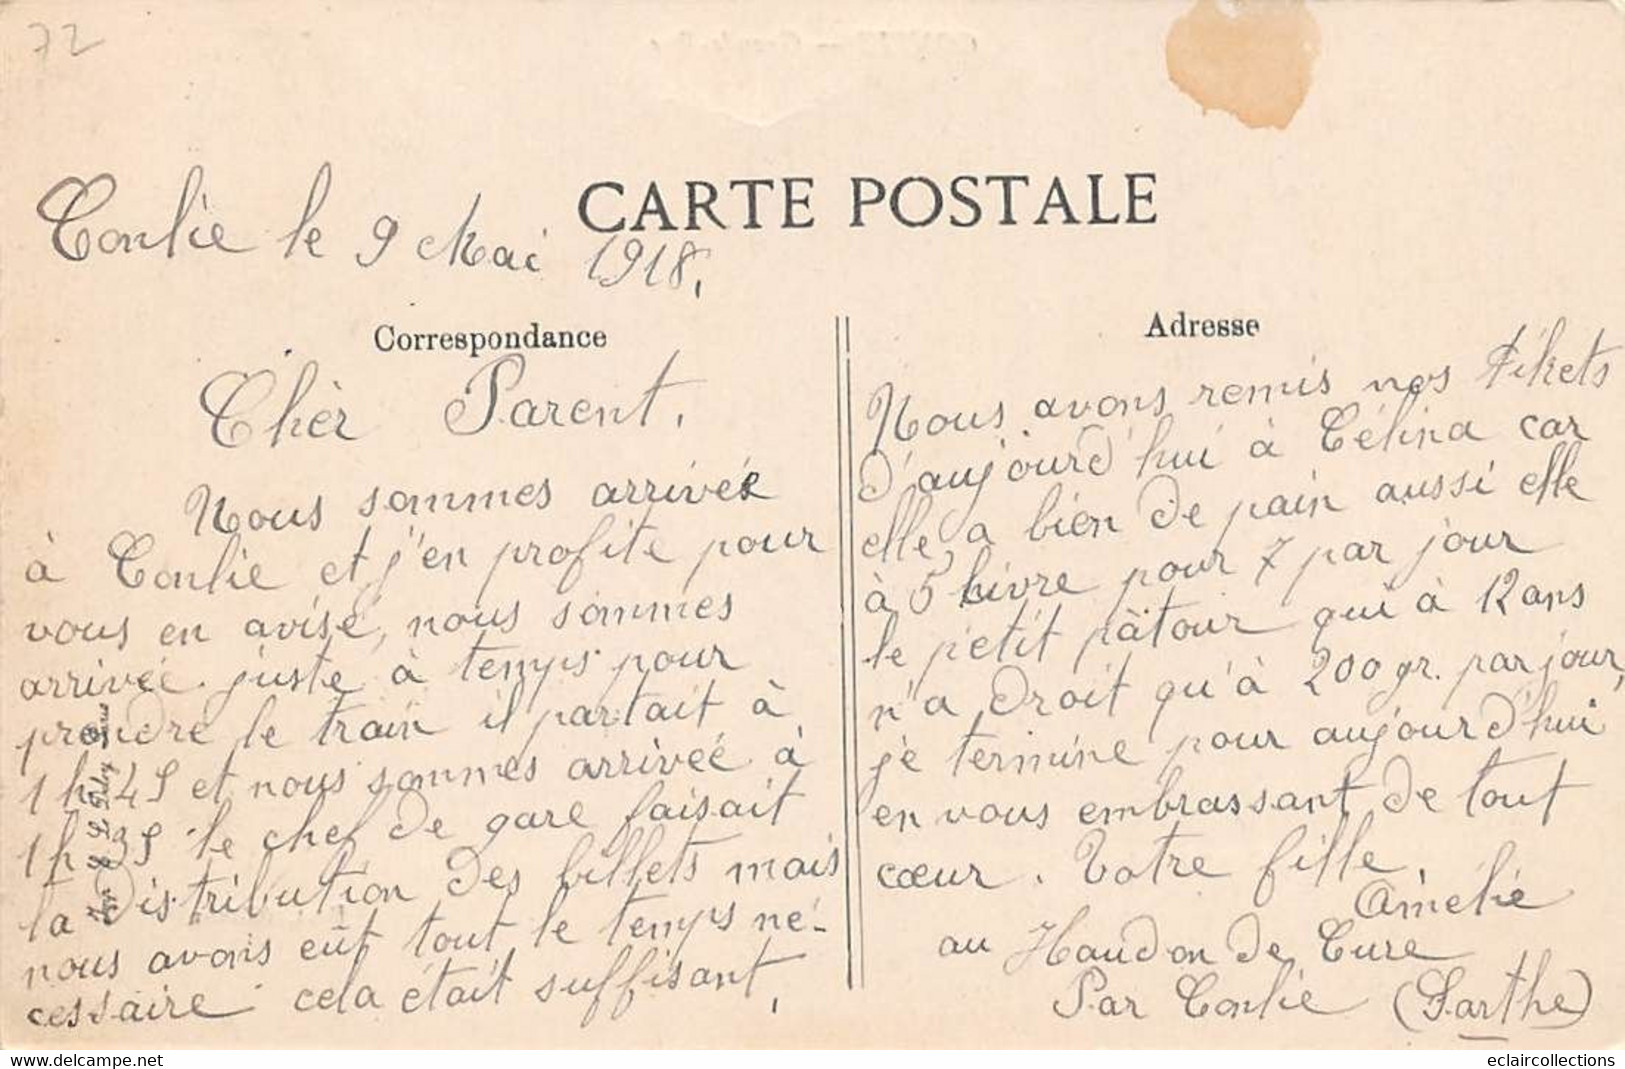 72
CARTE POSTALE
Conlie le 9 Mai 1918,
Correspondance
Chèr Parent,
Nous sommes arrivée
à Conlie et j'en profite pour
vous en avise, nous sommes
arrivée juste à temps pour
prendre le train il partait à
1h 45 et nous sommes arrivée à
1h 35 le chef de gare faisait
la distribution des billets mais
nous avons eût tout le temps né-
cessaire cela était suffisant,
Adresse
Nous avons remis nos tikets
d'aujourd'hui à Célina car
elle a bien de pain aussi elle
à 5 livre pour 7 par jour
le petit pâtour qui à 12 ans
n'a droit qu'à 200 gr. par jour,
je termine pour aujourd'hui
en vous embrassant de tout
cœur. Votre fille,
Amélie
au Haudon de Cure
Par Conlie (Sarthe)
eclaircollections